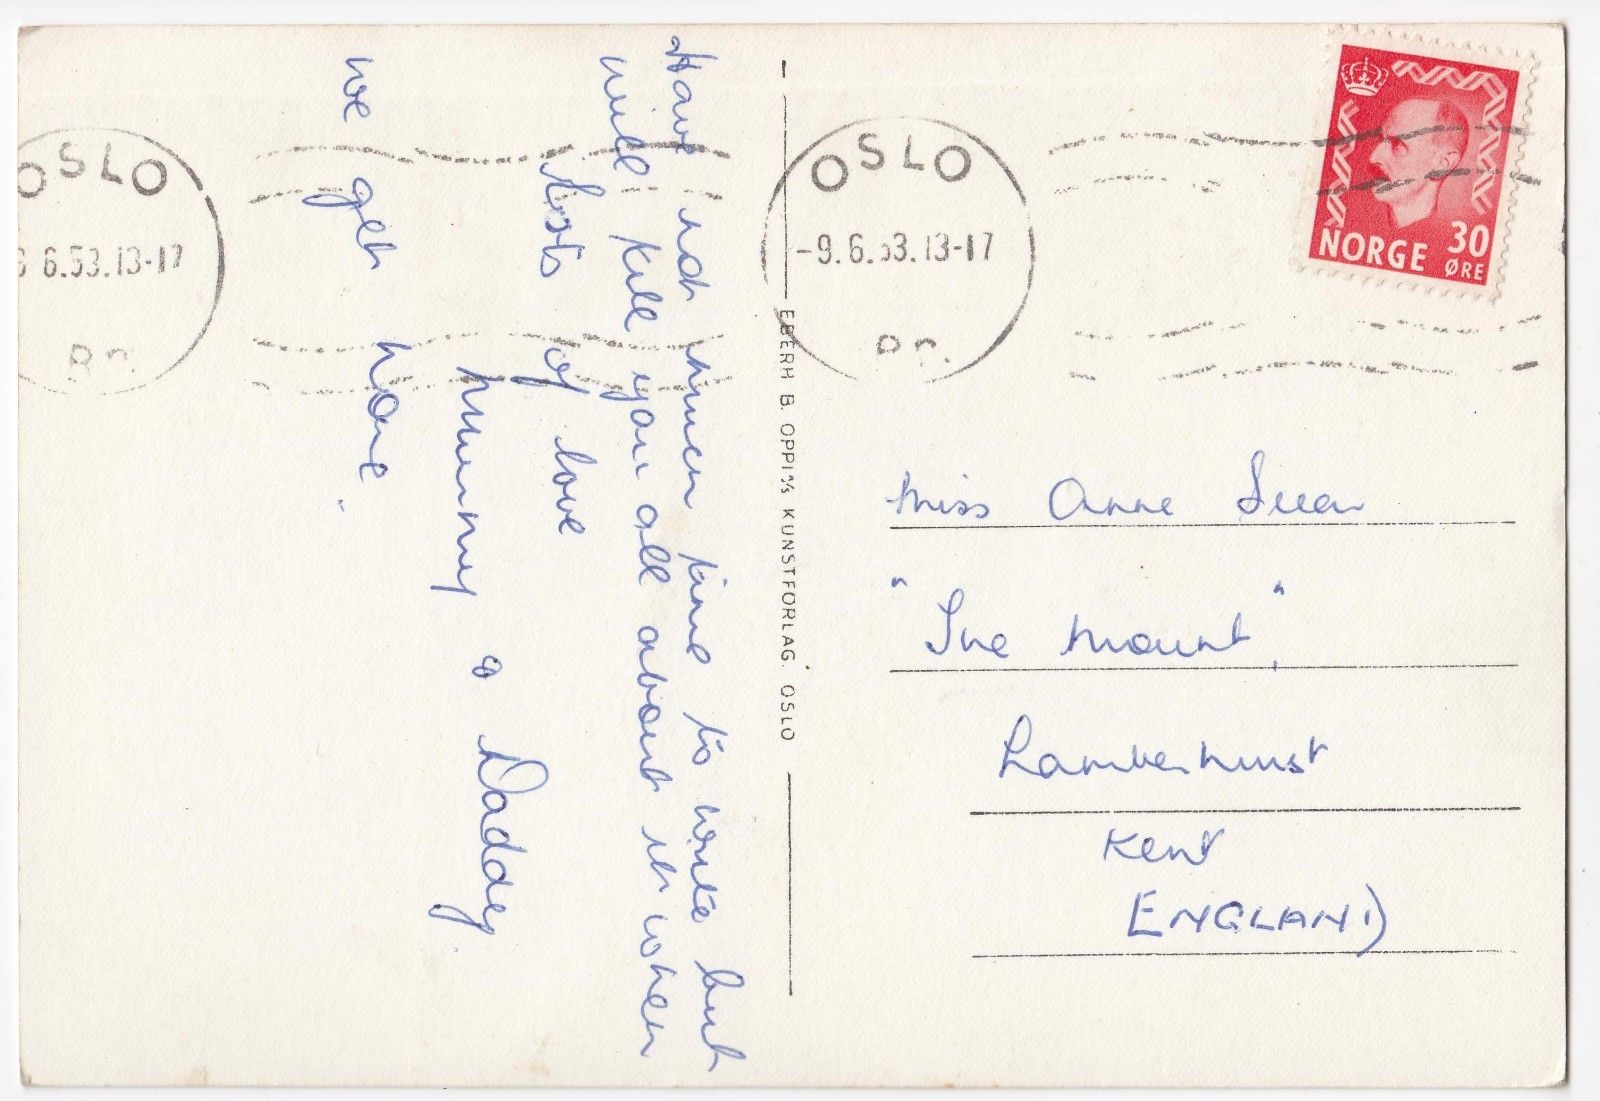 Have not much time to write but
will tell you all about it when
we get home.
Lots of love
Mummy & Daddy.
OSLO
6.53.13-17
OSLO
-9.6.53.13-17
NORGE 30 ØRE
EBERH. B. OPPI A/S KUNSTFORLAG. OSLO
Miss Anne
"The Mount",
Lamberhurst
Kent
ENGLAND